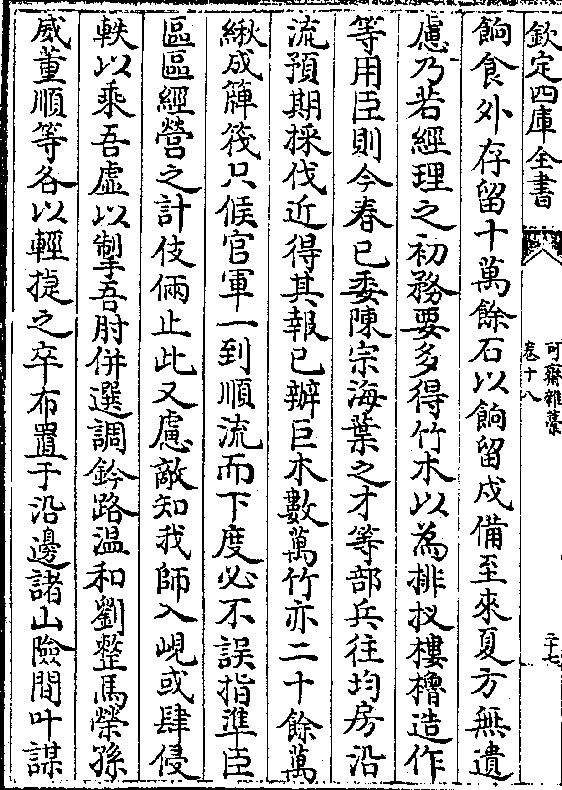 欽定四庫全書
可齋雜藁
卷十八
二十七
餉食外存留十萬餘石以餉留戍備至來夏方無遺
慮乃若經理之初務要多得竹木以為排杈樓櫓造作
等用臣則今春已委陳宗海葉之才等部兵往均房沿
流預期採伐近得其報已辦巨木數萬竹亦二十餘萬
緻成簰筏只候官軍一到順流而下度必不誤指準臣
區區經營之計伎倆止此又慮敵知我師入峴或肆侵
軼以乘吾虛以掣吾肘併選調鈐路溫和劉整馬榮孫
威董順等各以輕㨗之卒布置于沿邊諸山險間叶謀